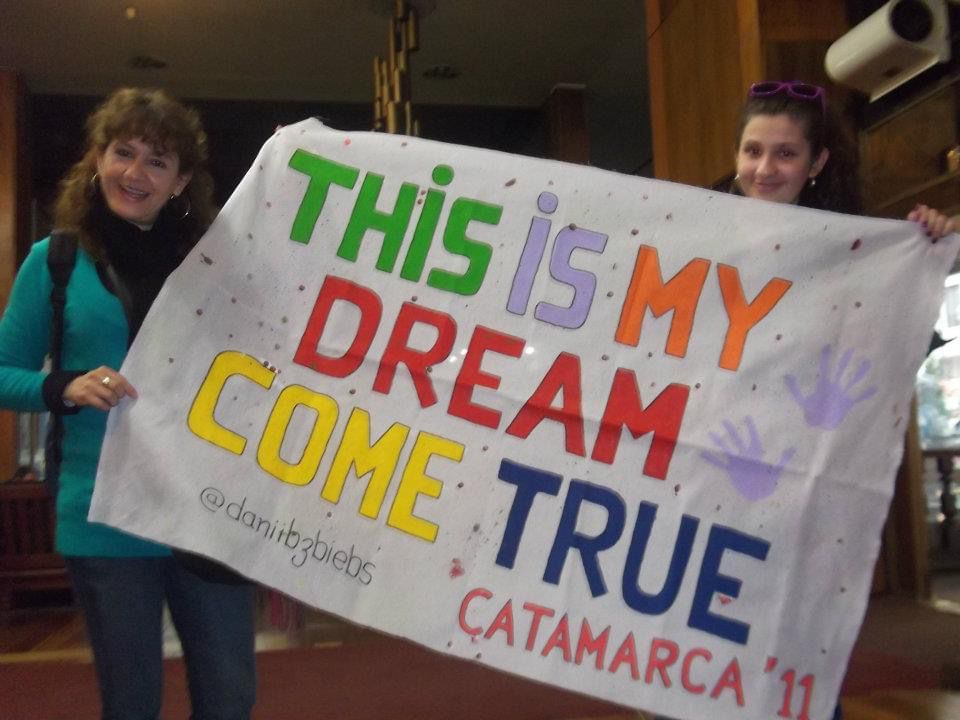 THiS iS MY
DREAM
COME TRUE
@daniib3biebs
CATAMARCA '11